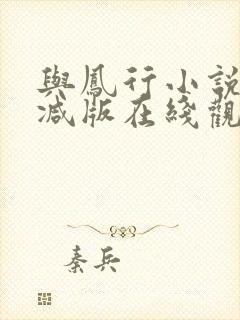 與鳳行小説
减版在綫觀
秦兵